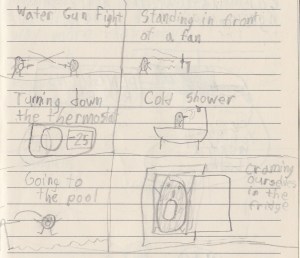 Water Gun Fight
Standing in front
of a fan
Turning down
the thermost
-25
Cold shower
Going to
the pool
Craming
ourselves
in the
fridge